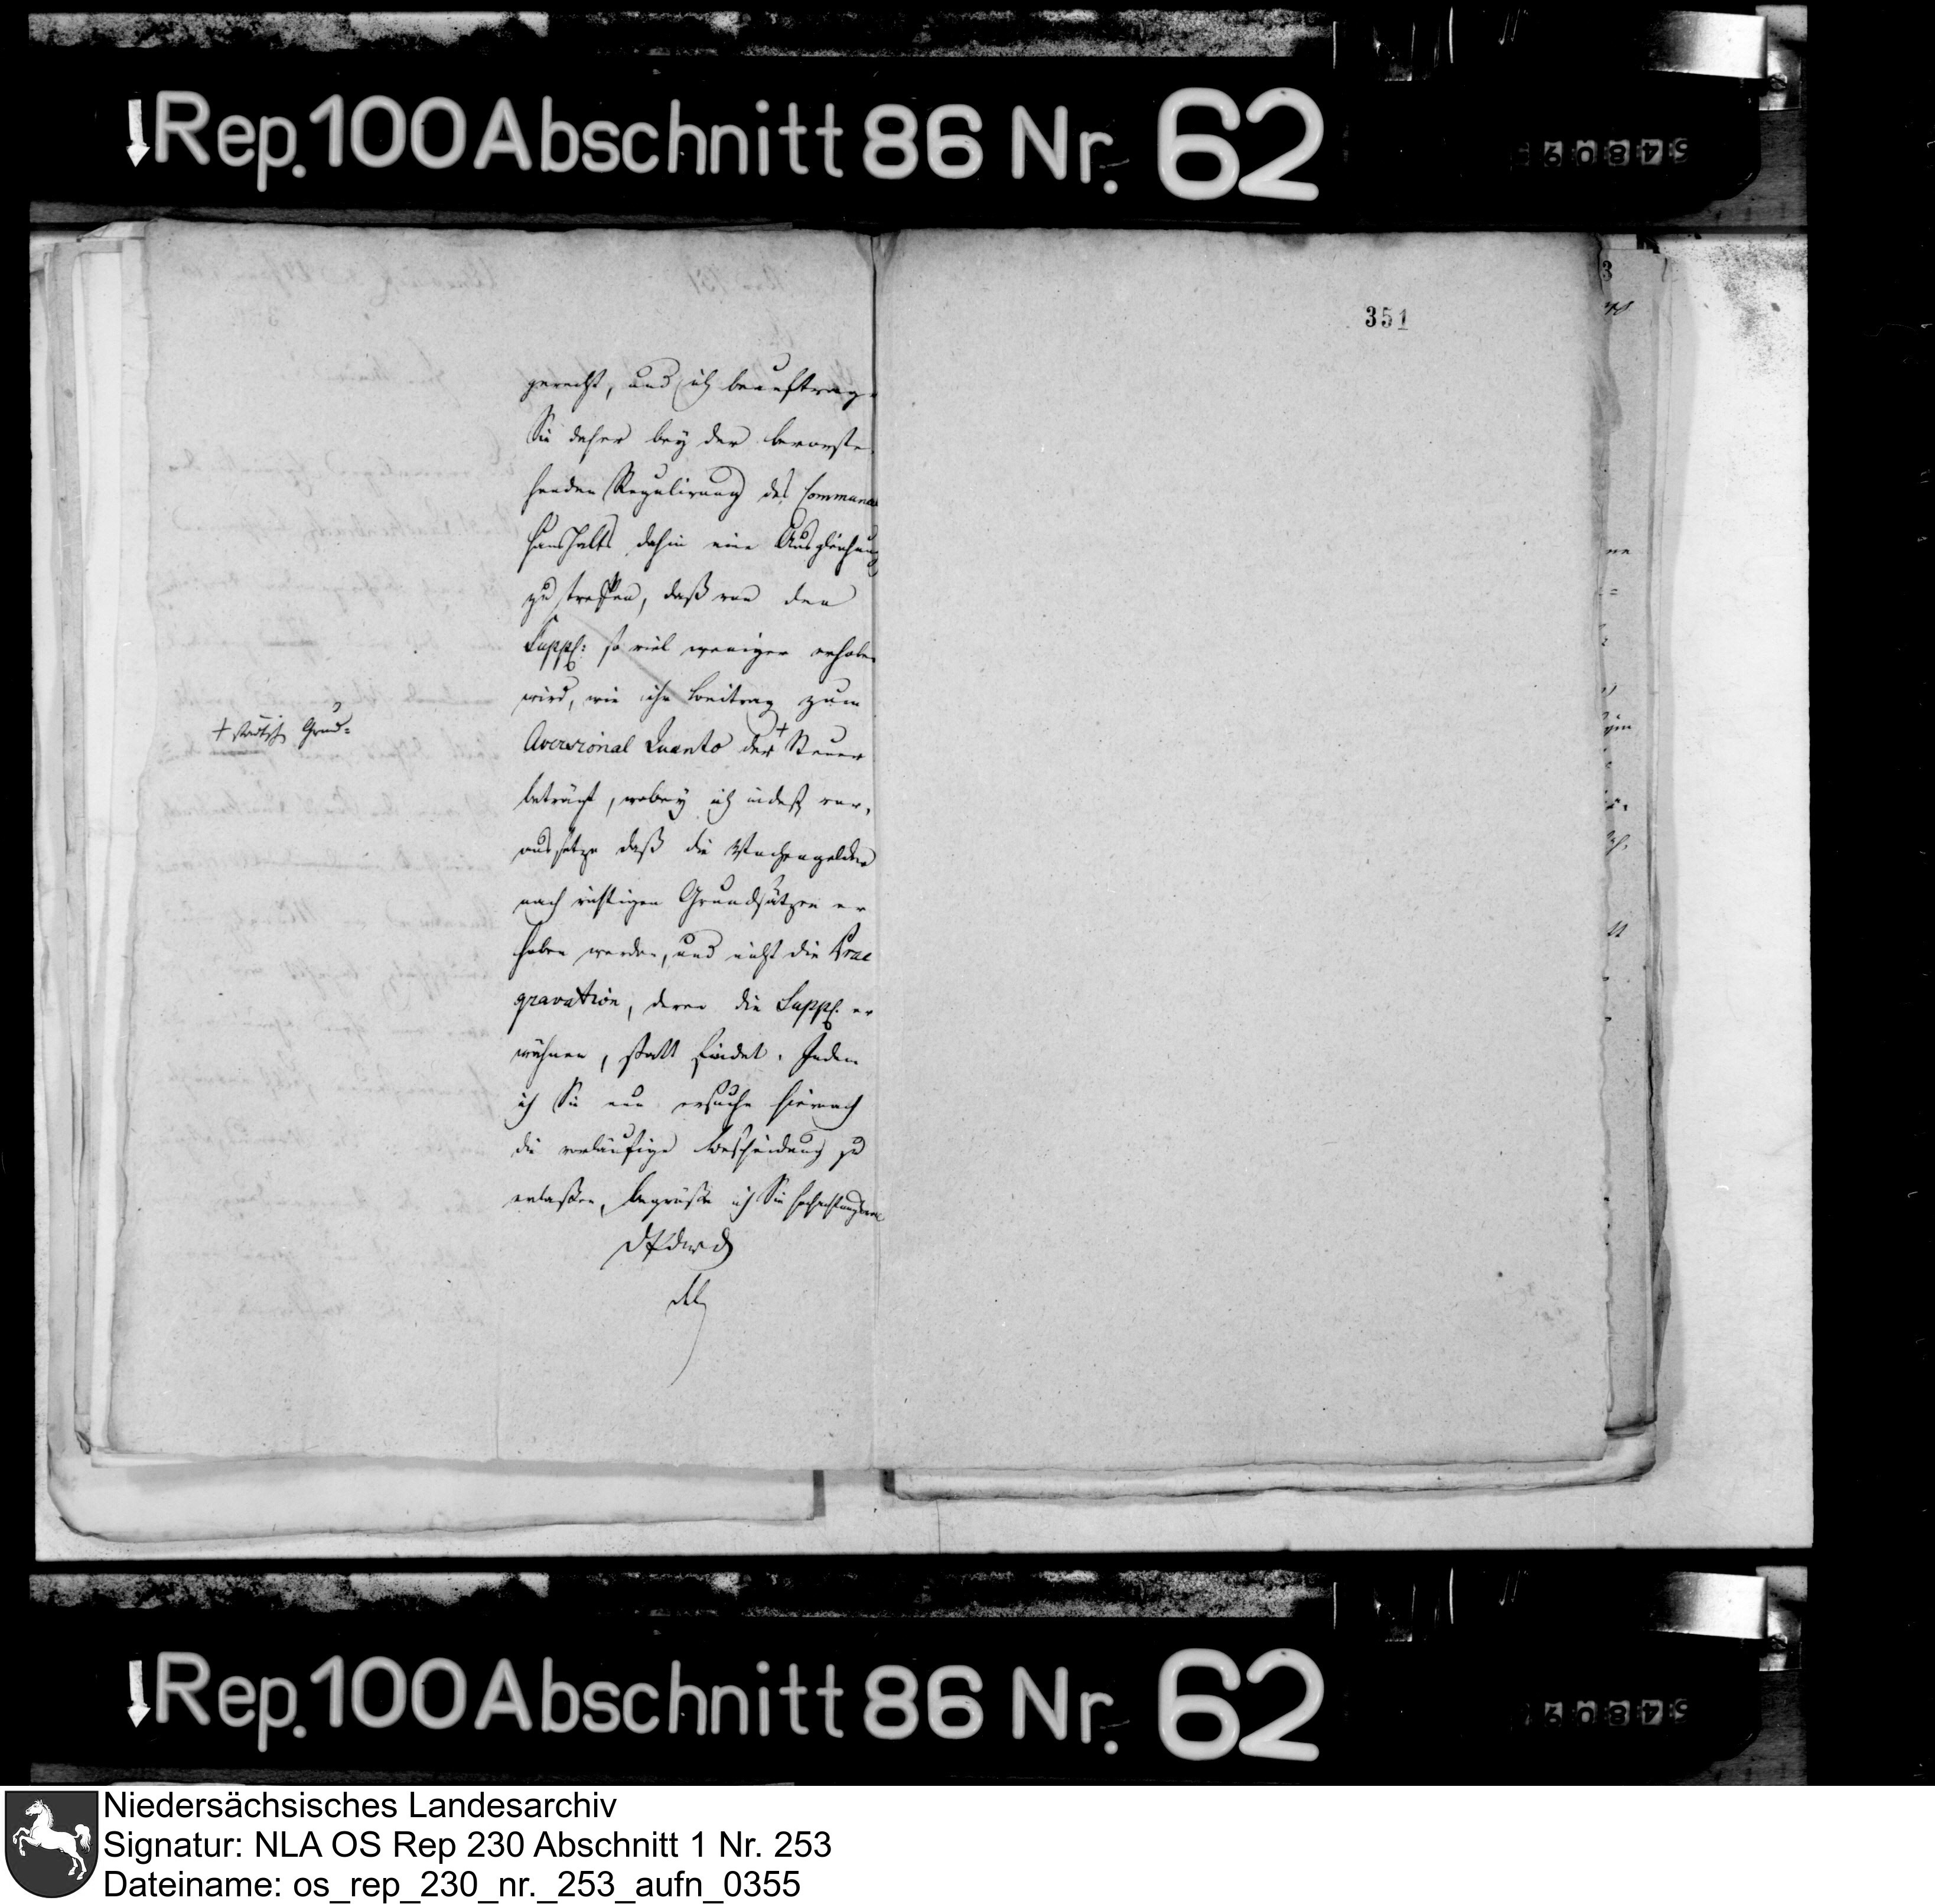 Rep. 100 Abschnitt 86 Nr. 62
351
gerecht, und ich beauftrage
Sie daher bey der bevorste
henden Regulirung des Communal
Haushalts dahin eine Ausgleichung
zu treffen, daß von den
Suppl: so viel weniger erhoben
wird, wie ihr Beitrag zum
Aversional Quanto der + Steuer
+ städtisch Grund=
beträgt, wobey ich indeß vor,
aussetze daß die Wachengelder
nach richtigen Grundsätzen er
hoben werden, und nicht die Prae
gravation, deren die Suppl. er
wähnen, statt findet. Indem
ich Sie nun ersuche hiernach
die vorläufige Bescheidung zu
erlaßen, begrüße ich Sie hochachtungsvoll
Rep. 100 Abschnitt 86 Nr. 62
Niedersächsisches Landesarchiv
Signatur: NLA OS Rep 230 Abschnitt 1 Nr. 253
Dateiname: os_rep_230_nr._253_aufn_0355